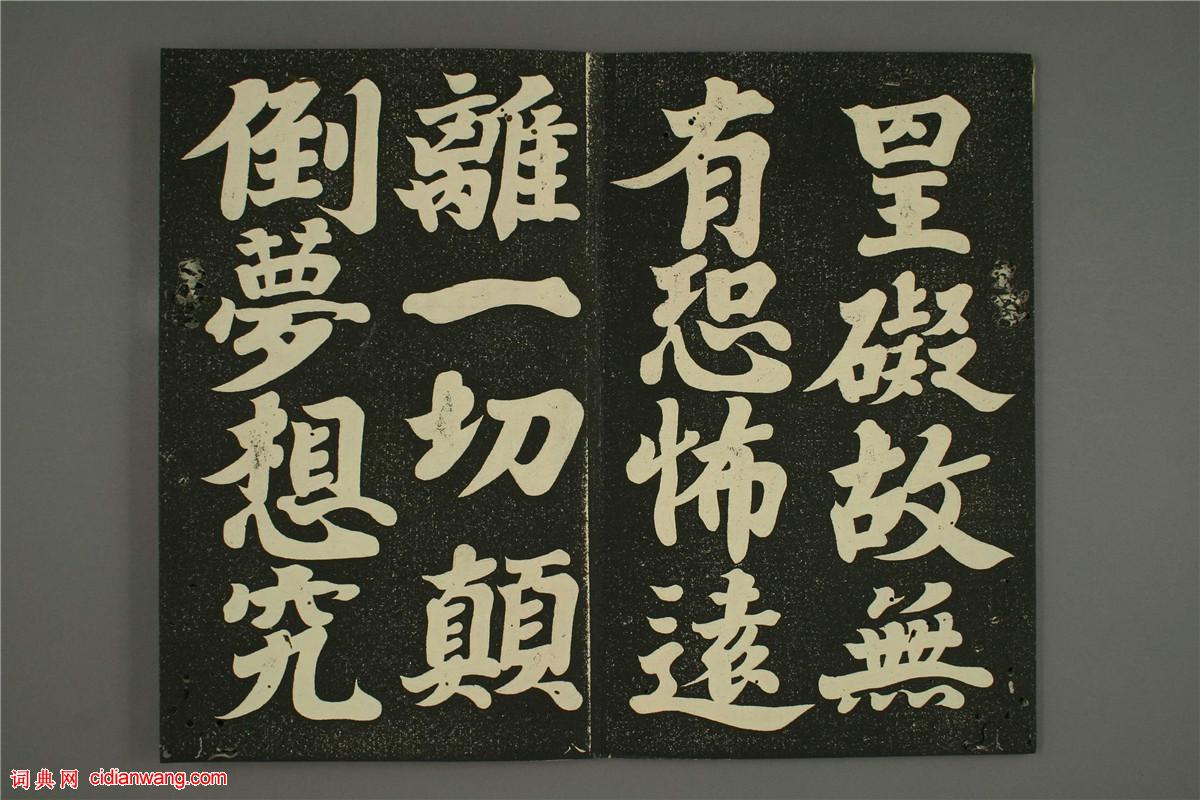 罣礙故無
有恐怖遠
離一切顛
倒夢想究
词典网 cidianwang.com